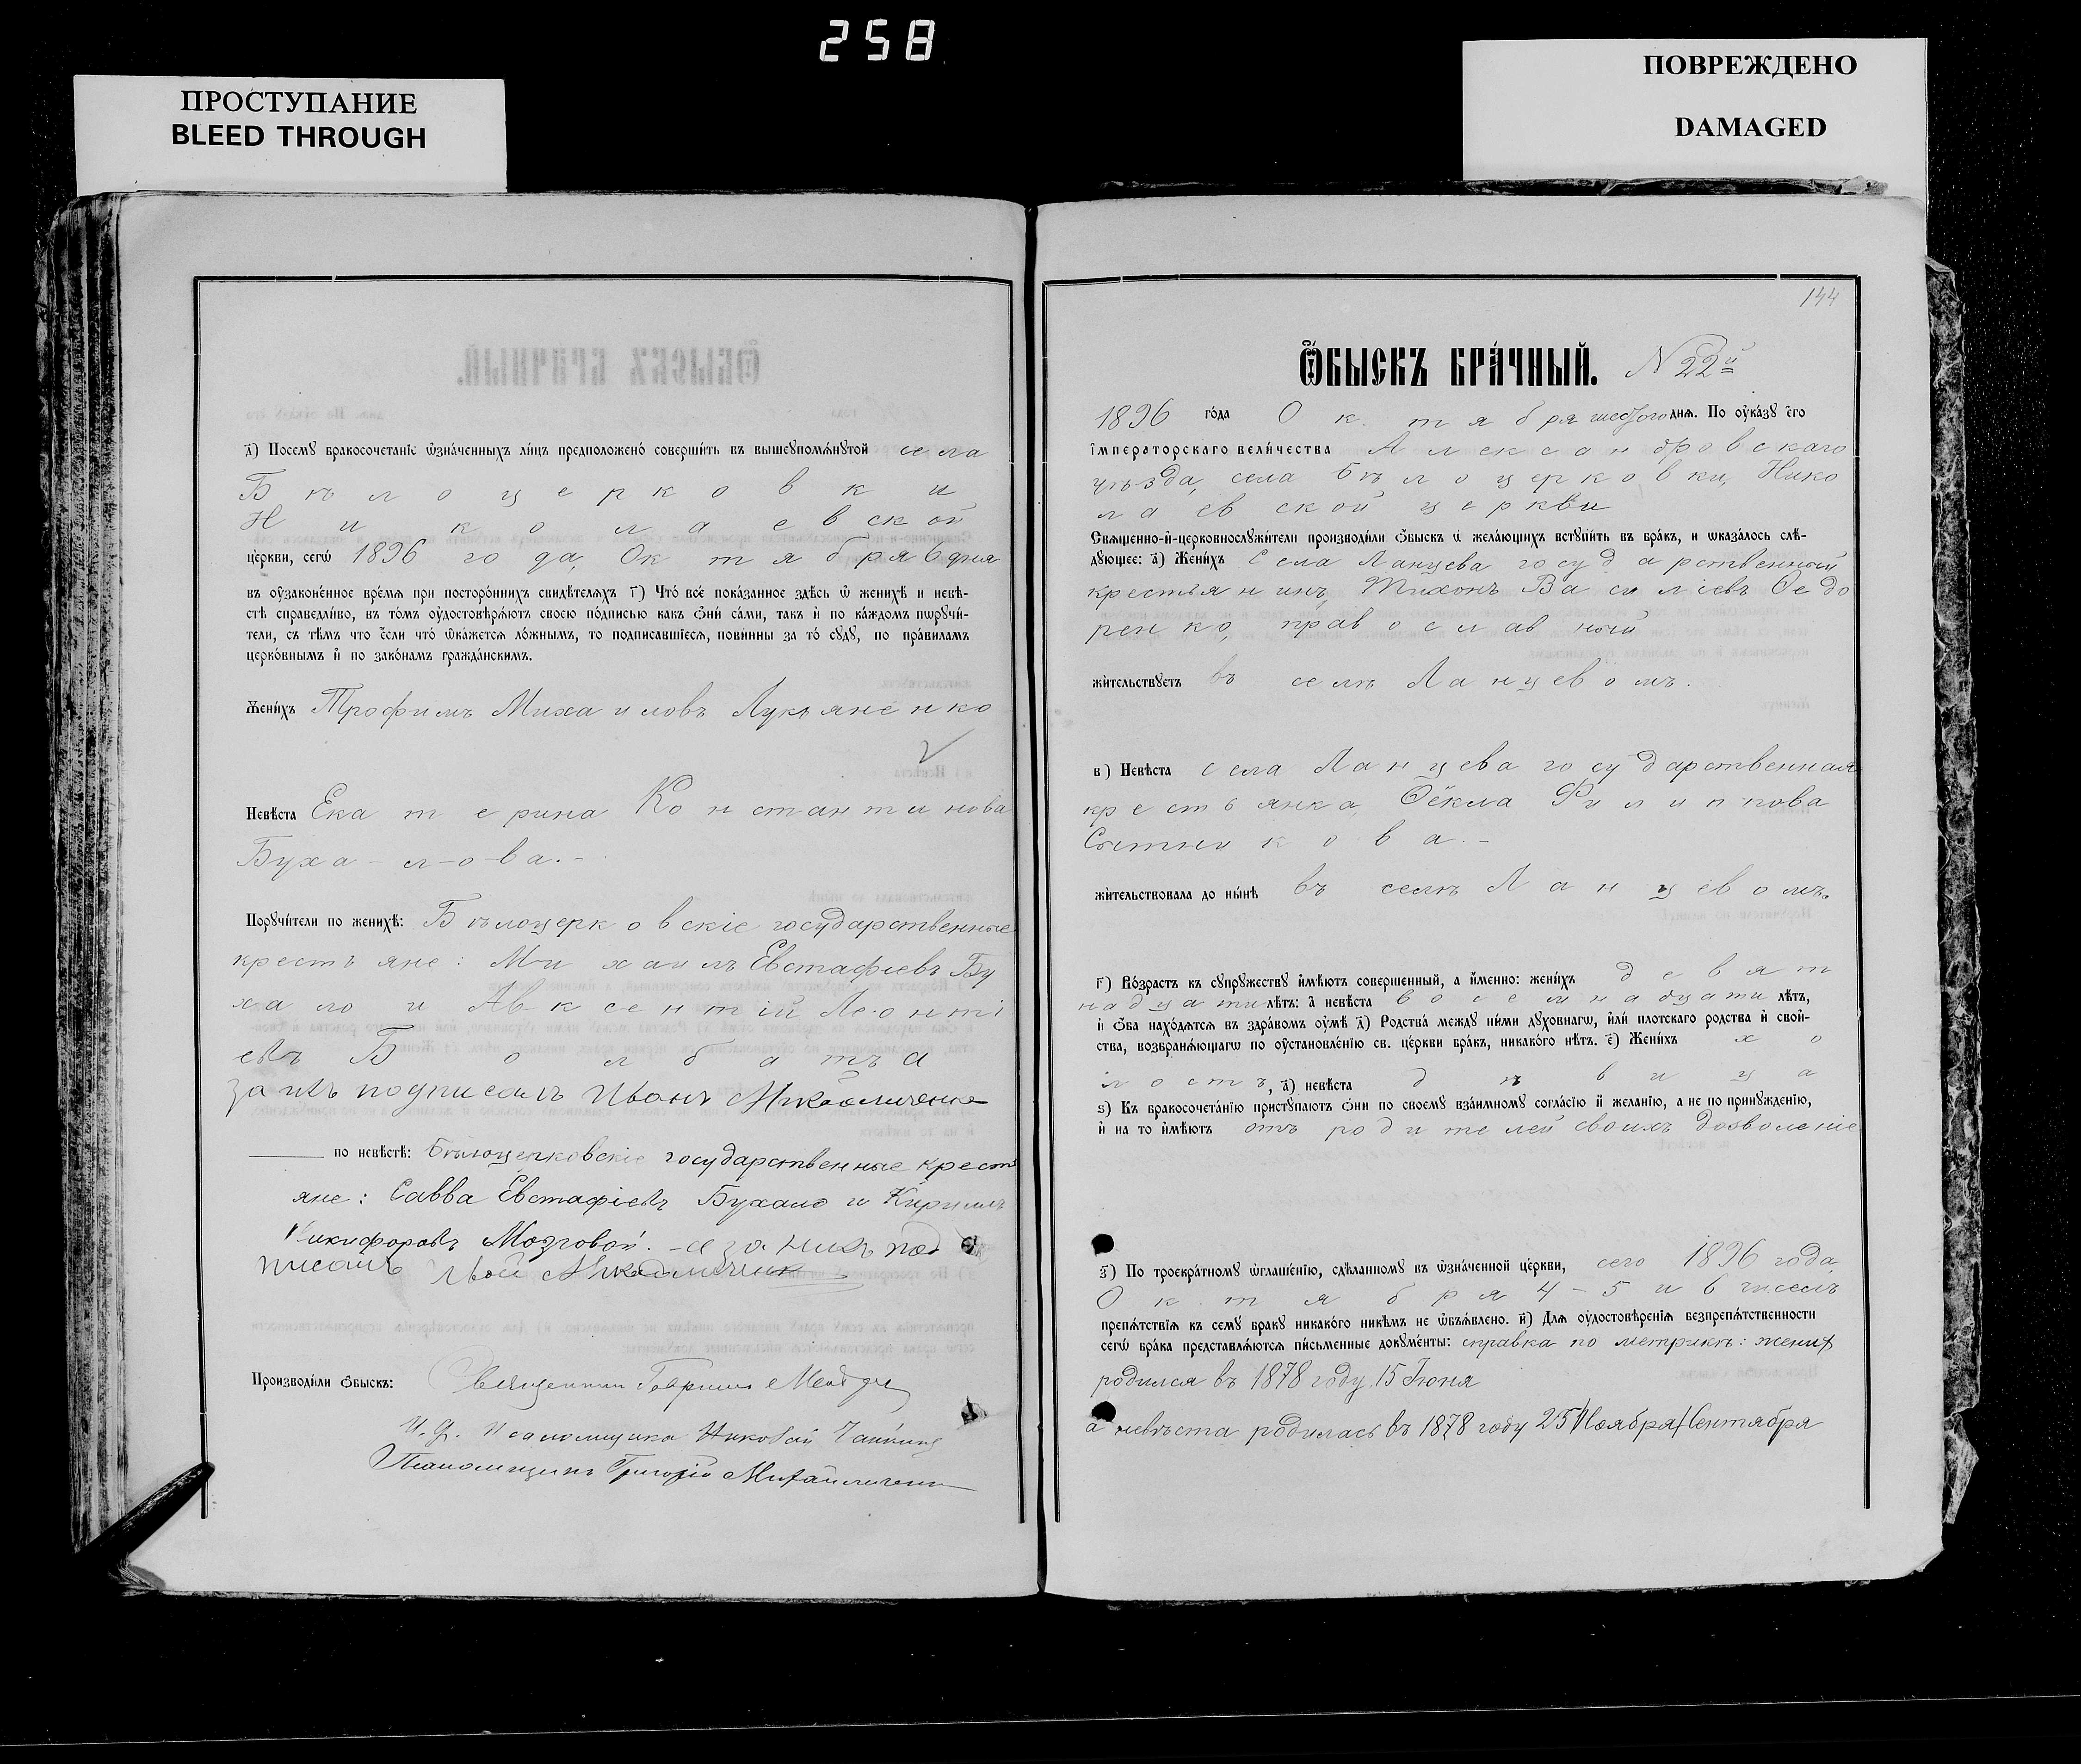 258
ПРОСТУПАНИЕ
BLEED THROUGH
ПОВРЕЖДЕНО
DAMAGED
д҃) Посемꙋ бракосочетаніе ѡзна́ченныхъ ли́цъ предположено́ соверши́ть въ вышеꙋпомѧ́нꙋтой села
Бѣлоцерковки
Николаевской
це́ркви, сегѡ̀ 1896 года, Октября 6 дня
въ оу҆зако́ненное вре́мѧ при посторо́ннихъ свидѣ́телѧхъ г҃) Что́ всѐ пока́занное здѣ́сь ѡ҆ женихѣ̀ и невѣ́-
стѣ справедли́во, въ то́мъ оу҆достовѣрѧ́ютъ своею по́дписью какъ ѻ҆нѝ са́ми, такъ и҆ по ка́ждомъ порꙋчи́-
тели, съ тѣ́мъ что є҆́сли что́ ѡ҆ка́жетсѧ ло́жнымъ, то подписавшїесѧ, пови́нны за то́ сꙋдꙋ̀, по пра́виламъ
церко́внымъ и҆ по зако́намъ гражда́нскимъ.
Жени́хъ Трофимъ Михаиловъ Лукьяненко
Невѣ́ста Екатерина Константинова
Буха-л-о-ва.-
Порꙋчи́тели по женихѣ̀: Бѣлоцерковскіе государственные
крестьяне: Михаилъ Евстафіевъ Бу
хало и Авксентій Леонті
евъ Болбатъ а
за ихъ подписалъ Иванъ
по невѣ́стѣ: Бѣлоцерковскіе государственные крестъ
яне: Савва Евстафіевъ Бухало и Кирилъ
Никифоровъ Мозговой. - а за нихъ под
писалъ
Производи́ли ѻ҆́быскъ: Священникъ Гавріилъ
И. д. псаломщика Николай
Псаломщикъ Григорій Михайличенко
144
Ѻ҆́БЫСКЪ БРА́ЧНЫЙ. N 22й
1896 го́да Октября шестого днѧ. По оу҆ка́зꙋ є҆гѡ̀
і҆мператорскагѡ вели́чества Александровскаго
уѣзда, села Бѣлоцерковки, Нико
лаевской церкви
Свѧще́нно-и҆-церковнослꙋжи́тели производи́ли ѻ҆́быскъ ѡ҆ жела́ющихъ встꙋпи́ть въ бра́къ, и ѡказа́лось слѣ́-
дꙋющее: а҃) Жени́хъ Села Ланцева государственный
крестьянинъ, Тихонъ Василіевъ Ѳедо
ренко, православный
жи́тельствꙋетъ въ селѣ Ланцевомъ.
в҃) Невѣ́ста села Ланцева государственная
крестьянка, Ѳекла Филиппова
Сытникова.-
жи́тельствовала до ны́нѣ въ селѣ Ланцевомъ.
г҃) Во́зрастъ къ сꙋпрꙋжествꙋ и҆мѣ́ютъ совершенный, а и҆́менно: жени́хъ девят
надцати лѣтъ: а҆ невѣ́ста восемнадцати лѣтъ,
и҆ ѻ҆́ба нахо́дѧтсѧ въ здра́вомъ оу҆мѣ̀ д҃) Родства̀ междꙋ ни́ми дꙋхо́внагѡ, и҆лѝ плотскаго родства и҆ свой-
ства, возбранѧ́ющагѡ по оу҆становле́нію св. це́ркви бра́къ, никако́го нѣ́тъ. є҃) Жени́хъ хо
лостъ, а҃) невѣ́ста дѣвица
ѕ҃) Къ бракосочета́нію пристꙋпа́ютъ ѻ҆нѝ по своемꙋ̀ взаи́мномꙋ согла́сію и҆ жела́нію, а не по принꙋжде́нію,
и҆ на то и҆мѣ́ютъ отъ родителей своихъ дозволеніе
з҃) По троекра́тномꙋ ѡ҆глаше́нію, сдѣланномꙋ въ ѡзна́ченной це́ркви, сего 1896 года,
Октября 4-5 и 6 чиселъ
препѧ́тствїѧ къ семꙋ бракꙋ никако́го никѣ́мъ не ѡ҆бъѧвлено. и҃) Длѧ оу҆достовѣ́ренїѧ безпрепѧ́тственности
сегѡ̀ бра́ка представлѧ́ютсѧ пи́сьменные докꙋме́нты: справка по метрикѣ: женихъ
родился въ 1878 году 15 Іюня
а невѣста родилась въ 1878 году 25 Ноября/Сентября